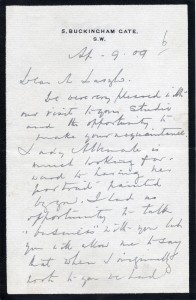 5, BUCKINGHAM GATE,
S.W.
Ap. 9. 09
Dear M. Laszlo.
We were very pleased with
our visit to your Studio
and the opportunity to
make your acquaintance
Lady
is
much looking for-
ward to having her
portrait painted
by you. I had no
opportunity to talk
"business" with you but
you will allow me to say
that when I originally
wrote to you we had